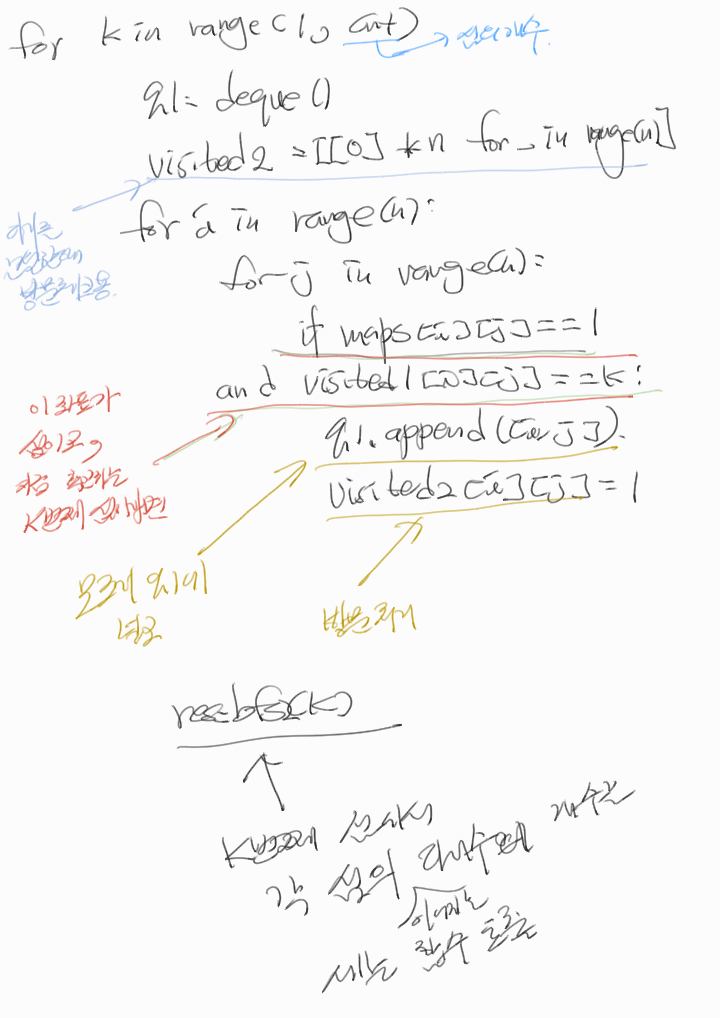 for k in range(1, cnt)
섬의 개수.
q1 = deque()
visited2 = [[0] * n for _ in range(n)]
for i in range(n):
for j in range(n):
if maps[i][j] == 1
and visited1[i][j] == k:
q1.append([i, j]).
visited2[i][j] = 1
이 좌표가
섬이고,
지금
K번째 섬이라면
모조리 q1에
넣고
방문처리
res = bfs2(k)
K번째 섬에서
각 섬의 다리수
개수를
이어지는
세는 함수 호출